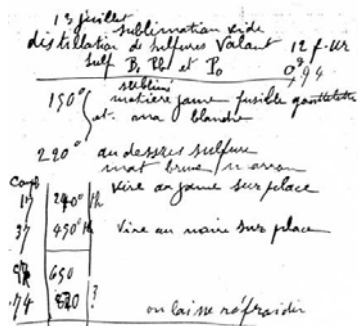 13 juillet
sublimation vide
distillation de sulfures valant 12 f. Ur
Sulf Bi Pb et Po 0g,94
sublimé
150° matière jaune fusible
et ana blanche
220° au dessus sulfure
mat brune marron
vire au jaune sur place
240° 1h
37 450° 1h vire au noire sur place
650
74 820 ? on laisse refroidir